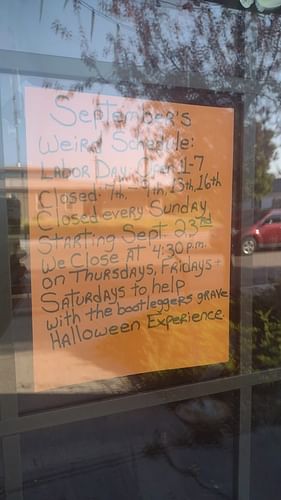 September's
Weird Schedule:
Labor Day Open 11-7
Closed: 7th - 9th, 15th, 16th
Closed every Sunday
Starting Sept. 23rd
We Close AT 4:30 p.m.
on Thursdays, Fridays +
Saturdays to help
with the bootleggers grave
Halloween Experience